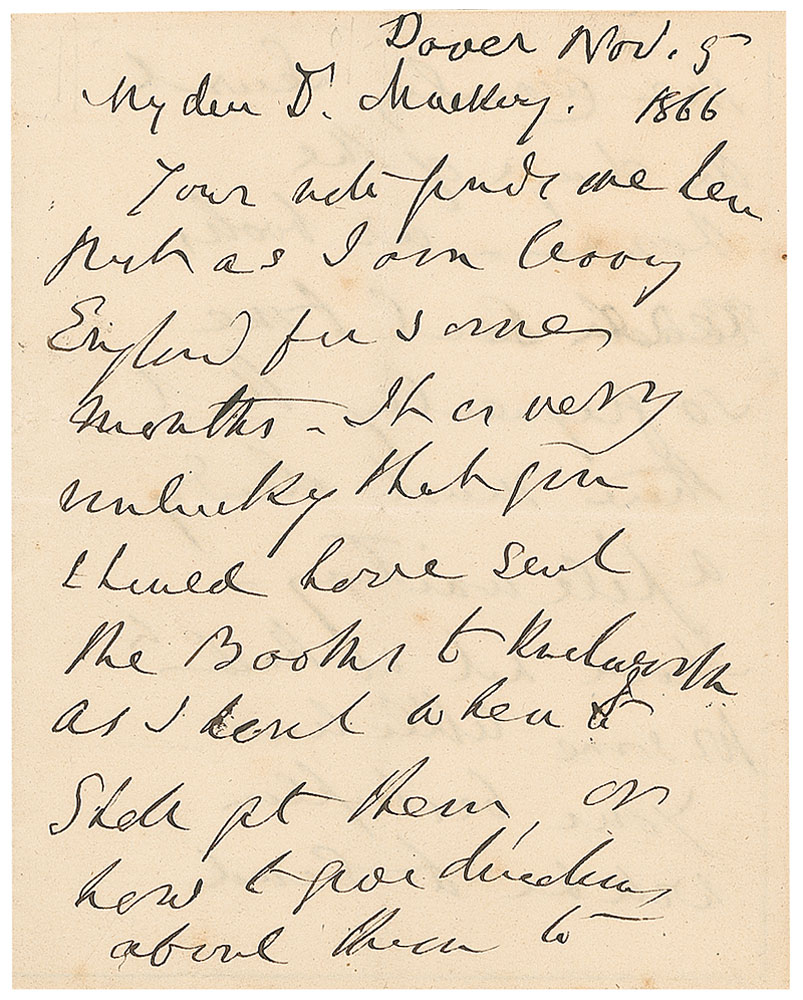 Dover Nov. 5
My dear Dr. Mackay. 1866
Your note finds me here
just as I am leaving
England for some
months - It is very
unlucky that you
should have sent
the Books to Knebworth
as I dont when I
shall get them, or
how to give directions
about them to